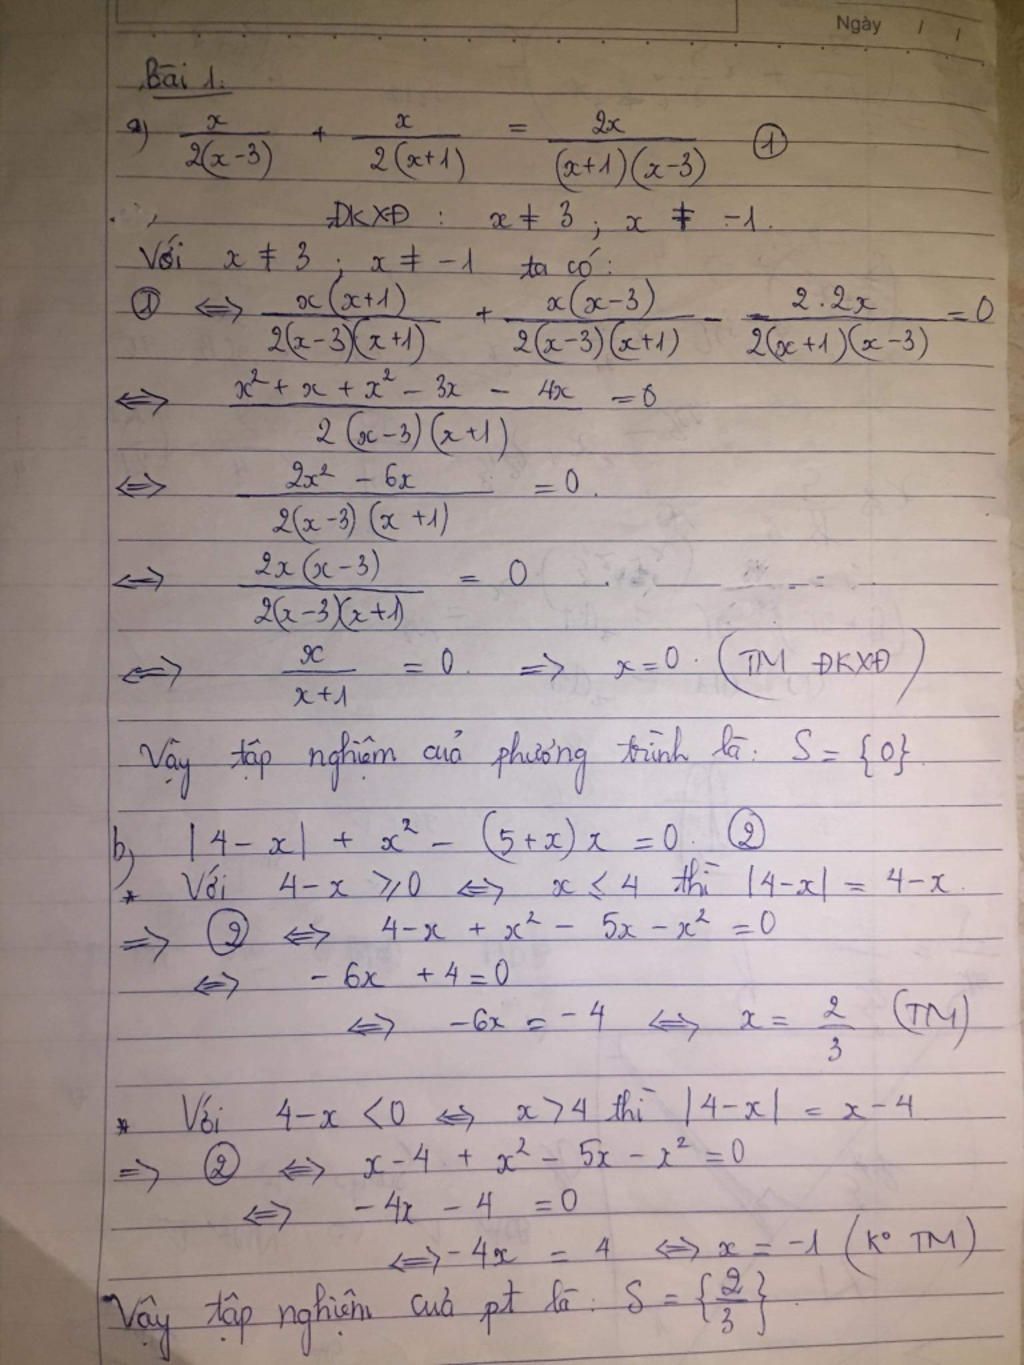 Ngày / /
Bài 1.
a) x/2(x-3) + x/2(x+1) = 2x/(x+1)(x-3) ①
ĐKXĐ : x ≠ 3 ; x ≠ -1.
Với x ≠ 3 ; x ≠ -1 ta có:
① ⇔ x(x+1)/2(x-3)(x+1) + x(x-3)/2(x-3)(x+1) - 2.2x/2(x+1)(x-3) = 0
⇔ x² + x + x² - 3x - 4x/2(x-3)(x+1) = 0
⇔ 2x² - 6x/2(x-3)(x+1) = 0.
⇔ 2x(x-3)/2(x-3)(x+1) = 0
⇔ x/x+1 = 0. => x=0. (TM ĐKXĐ)
Vậy tập nghiệm của phương trình là: S = {0}.
b) |4-x| + x² - (5+x)x = 0. ②
* Với 4-x ≥ 0 ⇔ x ≤ 4 thì |4-x| = 4-x.
=> ② ⇔ 4-x + x² - 5x - x² = 0
⇔ -6x + 4 = 0
⇔ -6x = -4 ⇔ x = 2/3 (TM)
* Với 4-x < 0 ⇔ x > 4 thì |4-x| = x-4
=> ② ⇔ x-4 + x² - 5x - x² = 0
⇔ -4x - 4 = 0
⇔ -4x = 4 ⇔ x = -1 (K° TM)
Vậy tập nghiệm của pt là: S = {2/3}.